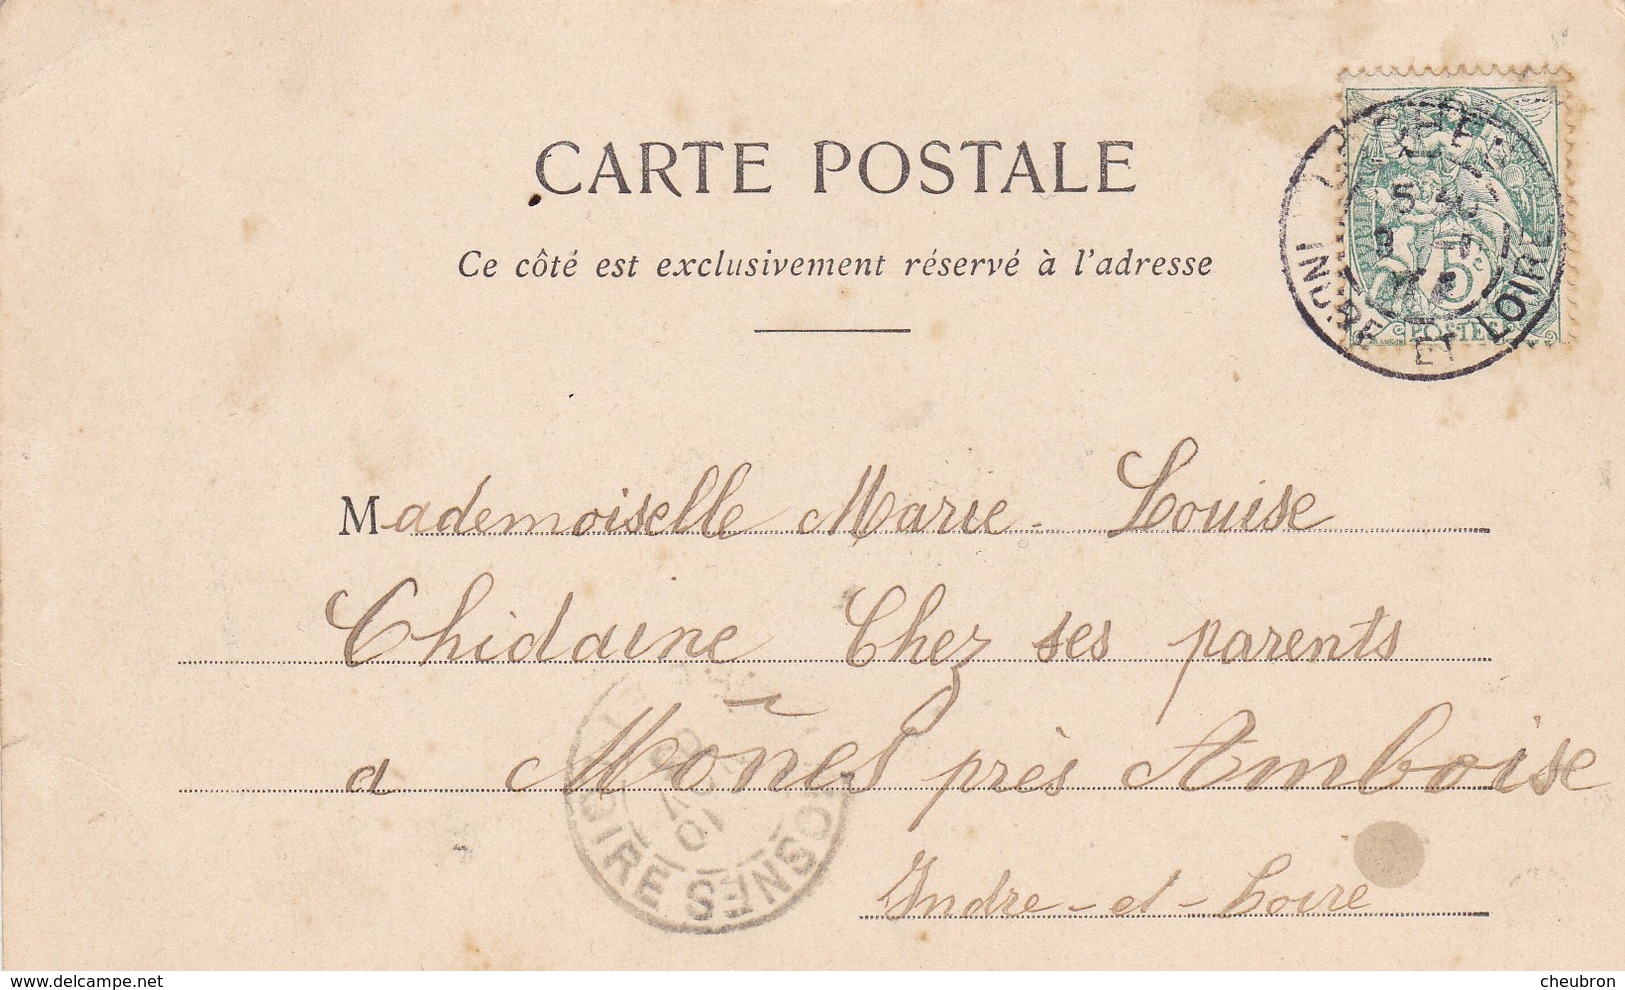 CARTE POSTALE
Ce côté est exclusivement réservé à l'adresse
5c
POSTES
INDRE ET LOIRE
Mademoiselle Marie-Louise
Chidaine Chez ses parents
a Mônes près Amboise
Indre-et-Loire
POSNES
www.delcampe.net
cheubron